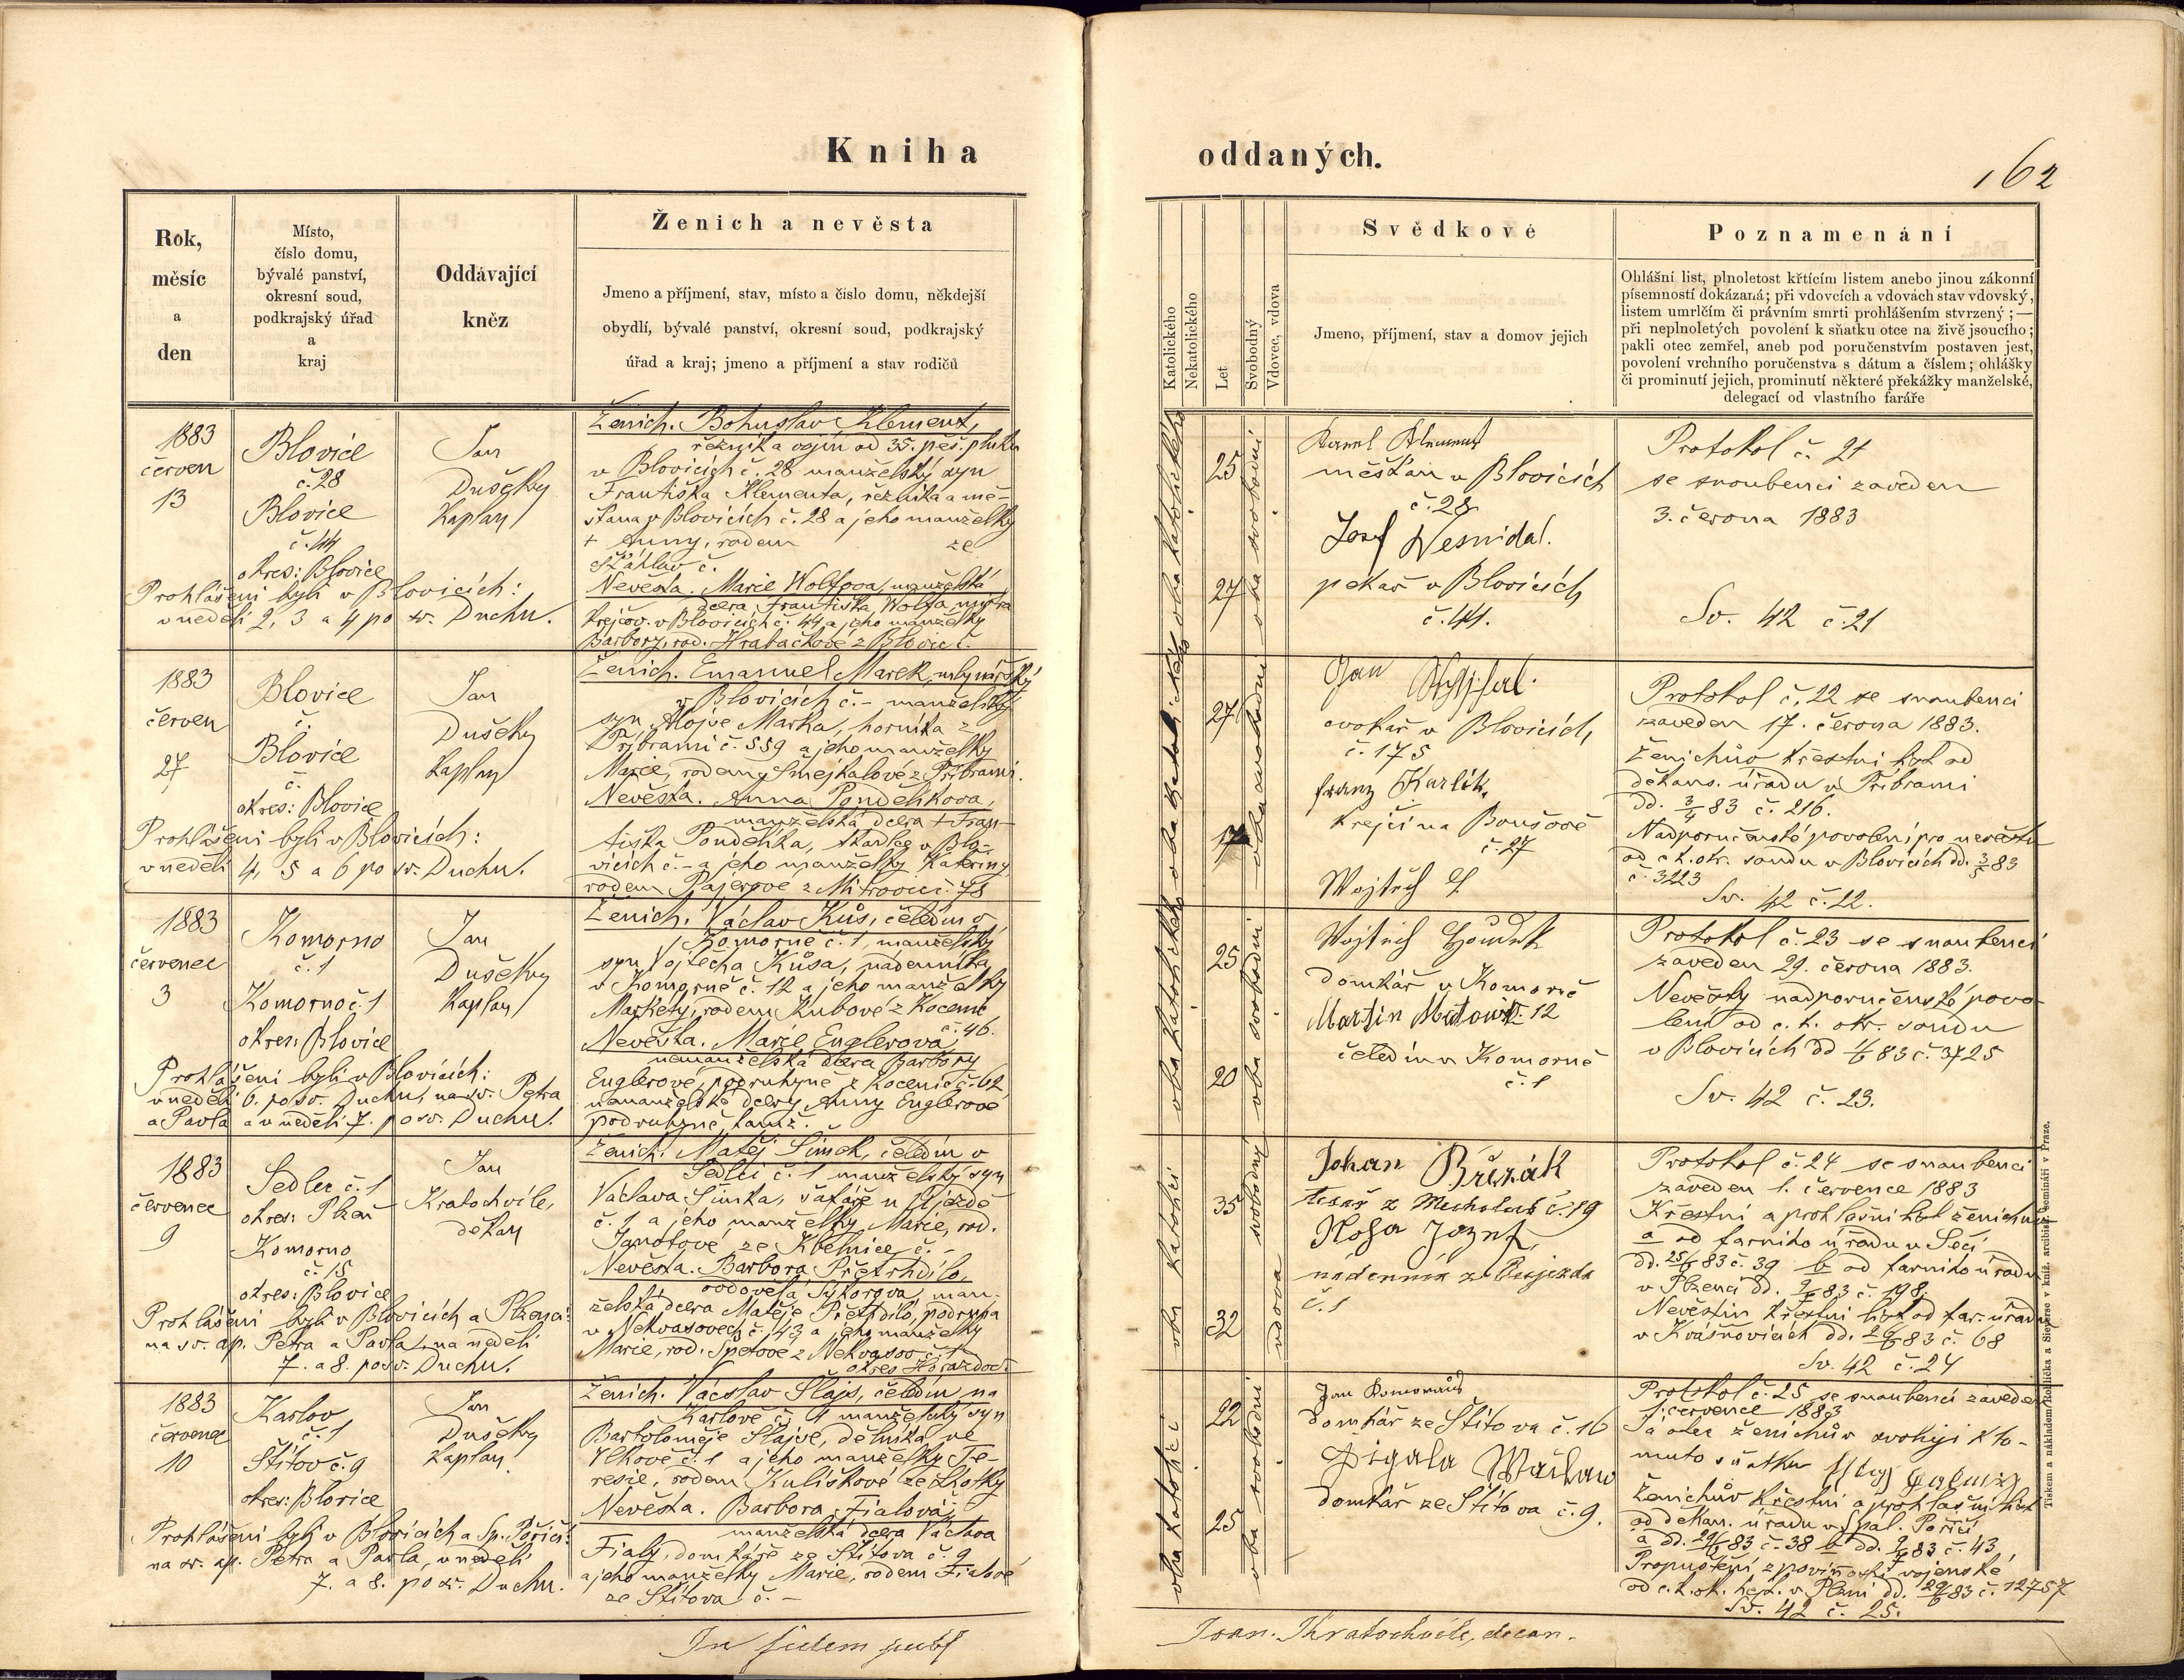 Kniha
oddaných.
162
Rok,
měsíc
a
den
Místo,
číslo domu,
bývalé panství,
okresní soud,
podkrajský úřad
a
kraj
Oddávající
kněz
Ženich a nevěsta
Jmeno a příjmení, stav, místo a číslo domu, někdejší
obydlí, bývalé panství, okresní soud, podkrajský
úřad a kraj; jmeno a příjmení a stav rodičů
Katolického
Nekatolického
Let
Svobodný
Vdovec, vdova
Svědkové
Jmeno, příjmení, stav a domov jejich
Poznamenání
Ohlášní list, plnoletost křtícím listem anebo jinou zákonní
písemností dokázaná; při vdovcích a vdovách stav vdovský,
listem umrlčím či právním smrti prohlášením stvrzený; —
při neplnoletých povolení k sňatku otce na živě jsoucího;
pakli otec zemřel, aneb pod poručenstvím postaven jest,
povolení vrchního poručenstva s dátum a číslem; ohlášky
či prominutí jejich, prominutí některé překážky manželské,
delegací od vlastního faráře
1883
červen
13
Blovice
č. 28
Blovice
č. 44
okres: Blovice
Jan
Dušeky
kaplan
Prohlášeni byli v Blovicích:
v neděli 2, 3 a 4 po sv. Duchu.
Ženich. Bohuslav Klement,
řezník a vojín od 35. pěš. pluku
v Blovicích č. 28 manželský syn
Františka Klementa, řezníka a mě-
šťana v Blovicích č. 28 a jeho manželky
+ Anny, rodem ze
Šťáhlav č.
Nevěsta. Marie Wolfova, manželská
dcera Františka Wolfa, mistra
krejčov. v Blovicích č. 44 a jeho manželky
Barbory, rod. Hrabačkové z Blovic č.
oba katolického
25
27
oba svobodni
Karel Klement
měšťan v Blovicích
č. 28
Josef Nesnídal.
pekař v Blovicích
č. 41.
Protokol č. 21
se snoubenci zaveden
3. června 1883
Sv. 42 č. 21
1883
červen
27
Blovice
č.
Blovice
č.
okres: Blovice
Jan
Dušeky
kaplan
Prohlášeni byli v Blovicích:
v neděli 4, 5 a 6 po sv. Duchu.
Ženich. Emanuel Marek, mlynářský
v Blovicích č. – manželský
syn Alojse Marka, horníka z
Příbrami č. 559 a jeho manželky
Marie, rodem Smejkalové z Příbrami.
Nevěsta. Anna Pondělíkova,
manželská dcera + Fran-
tiška Pondělíka, tkadlce v Blo-
vicích č. – a jeho manželky Kateřiny
rodem Pajerové z Mítrovic č. 78
oba katolického
27
oba svobodni
Jan
ovokář v Blovicích,
č. 175
Franz Karlík,
krejčí na Boušově
č. 27
Wojtěch
Protokol č. 22 se snoubenci
zaveden 17. června 1883.
Ženichův křestní list od
děkans. úřadu v Příbrami
dd. 3/4 83 č. 216.
Nadporučenské povolení pro nevěstu
od c. k. okr. soudu v Blovicích dd. 3/5 83
č. 3223
Sv. 42 č. 22.
1883
červenec
3
Komorno
č. 1
Komorno č. 1
okres: Blovice
Jan
Dušeky
kaplan
Prohlášeni byli v Blovicích:
v neděli 6. po sv. Duchu, na sv. Petra
a Pavla a v neděli 7. po sv. Duchu.
Ženich. Václav Kůs, čeledín v
Komorně č. 1, manželský
syn Vojtěcha Kůsa, nádenníka
v Komorně č. 12 a jeho manželky
Markéty, rodem Kubové z Kocenic
č. 46.
Nevěsta. Marie Englerová,
nemanželská dcera Barbory
Englerové, podruhyně z Kocenic č. 62
nemanželské dcery Anny Englerové
podruhyně tamž.
oba katolického
25
20
oba svobodni
Wojtěch Houdek
domkář v Komorně
č. 12
Martin
čeledín v Komorně
č. 1
Protokol č. 23 se snoubenci
zaveden 29. června 1883.
Nevěsty nadporučenské povo-
lení od c. k. okr. soudu
v Blovicích dd 1/6 83 č. 3725
Sv. 42 č. 23.
1883
července
9
Sedlec č. 1
okres: Plzeň
Komorno
č. 15
okres: Blovice
Jan
Kratochvíle,
děkan
Prohlášeni byli v Blovicích a Plzenci:
na sv. ap. Petra a Pavla, na neděli
7. a 8. po sv. Duchu.
Ženich. Matěj Šimek, čeledín v
Sedlci č. 1 manželský syn
Václava Šimka, šafáře v Újezdě
č. 1 a jeho manželky Marie, rod.
Janotové ze Kbelnice č. –
Nevěsta. Barbora Přetrhdilo,
ovdovělá Sýkorova, man-
želská dcera Matěje Přetrhdilo, podruha
v Nekvasovech č. 43 a jeho manželky
Marie, rod. Špetové z Nekvasov č. 1
okres Horažďov.
oba katolíci
35
32
svobodný
vdova
Johan Břízák
tesař z Mecholup č. 19
Hosa Jozef,
nádenník z Oujezda
č. 1
Protokol č. 24 se snoubenci
zaveden 1. července 1883
Křestní a prohlašní list ženichův
a od farního úřadu v Sečí
dd. 25/6 83 č. 39 b od farního úřadu
v Plzenci dd. 9/7 83 č. 198.
Nevěstin křestní list od far. úřadu
v Kvášňovicích dd. 26/6 83 č. 68
Sv. 42 č. 24
1883
červenec
10
Karlov
č. 1
Štítov č. 9
okres: Blovice
Jan
Dušeky
kaplan
Prohlášeni byli v Blovicích a Sp. Poříčí:
na sv. ap. Petra a Pavla, v neděli
7. a 8. po sv. Duchu.
Ženich. Václav Šlajs, čeledín na
Karlově č. 1 manželský syn
Bartoloměje Šlajse, dělníka ve
Vlkově č. 1 a jeho manželky Te-
resie, rodem Kuliškové ze Lhotky
Nevěsta. Barbora Fialová,
manželská dcera Václava
Fialy, domkáře ze Štítova č. 9
a jeho manželky Marie, rodem Fialové
ze Štítova č. –
oba katolíci
22
25
oba svobodni
Jan
domkář ze Štítova č. 16
Wáclaw
domkář ze Štítova č. 9.
Protokol č. 25 se snoubenci zaveden
1. července 1883
Já otec ženichův svoluji k to-
muto sňatku
Ženichův křestní a prohlašní list
od děkan. úřadu v Spál. Poříčí
a dd. 29/6 83 č. 38 b dd. 9/7 83 č. 43
Propuštění z povinnosti vojenské
od c. k. ok. hejt. v Plzni dd. 29/6 83 č. 12757
Sv. 42 č. 25.
In fidem publ
Joan. Kratochvíle, decan.
Tiskem a nákladem Rohlíčka a Sieverse v kníž. arcibisk. semináři v Praze.